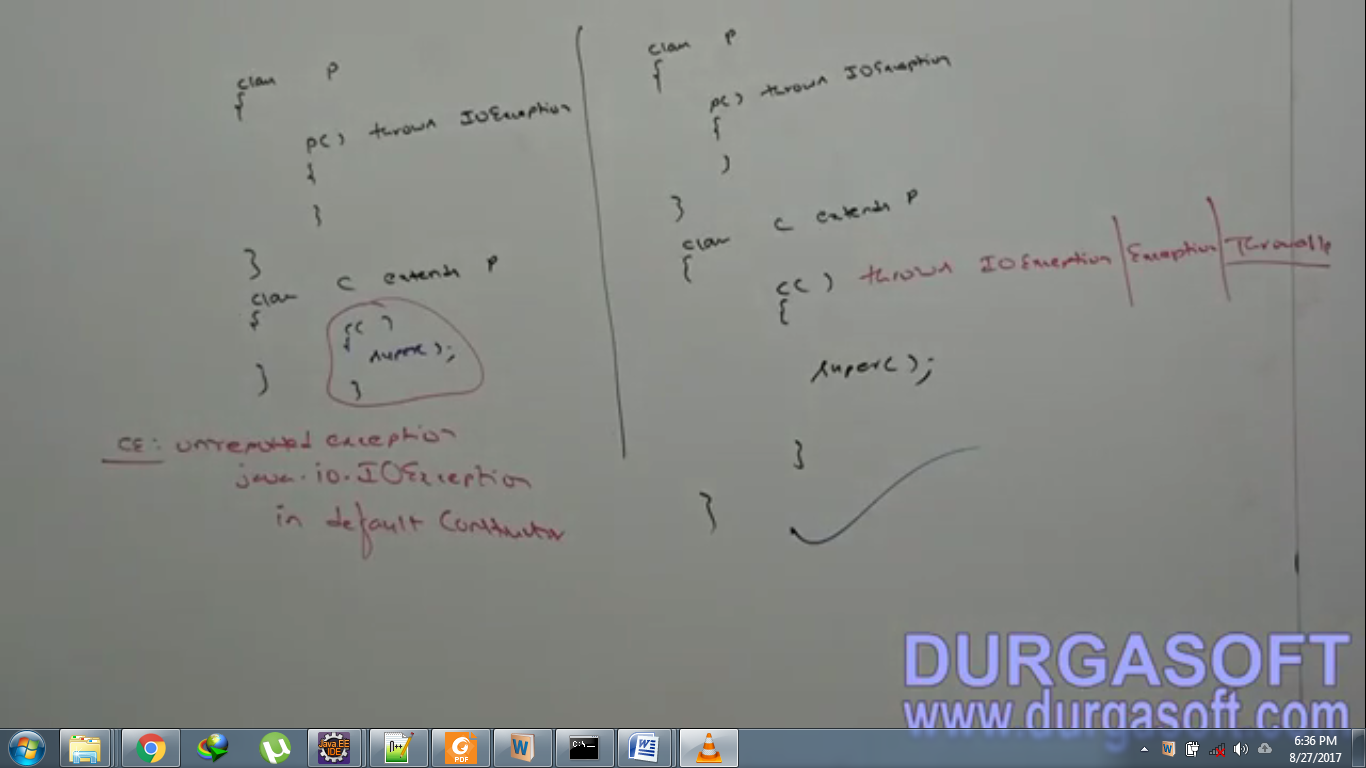 class P
{
P() throws IOException
{
}
}
class C extends P
{
C()
{
super();
}
}
CE: unreported exception
java.io.IOException
in default Constructor
class P
{
P() throws IOException
{
}
}
class C extends P
{
C() throws IOException | Exception | Throwable
{
super();
}
}
DURGASOFT
www.durgasoft.com
Java EE
IDE
N++
PDF
W
C:\
W
W
6:36 PM
8/27/2017